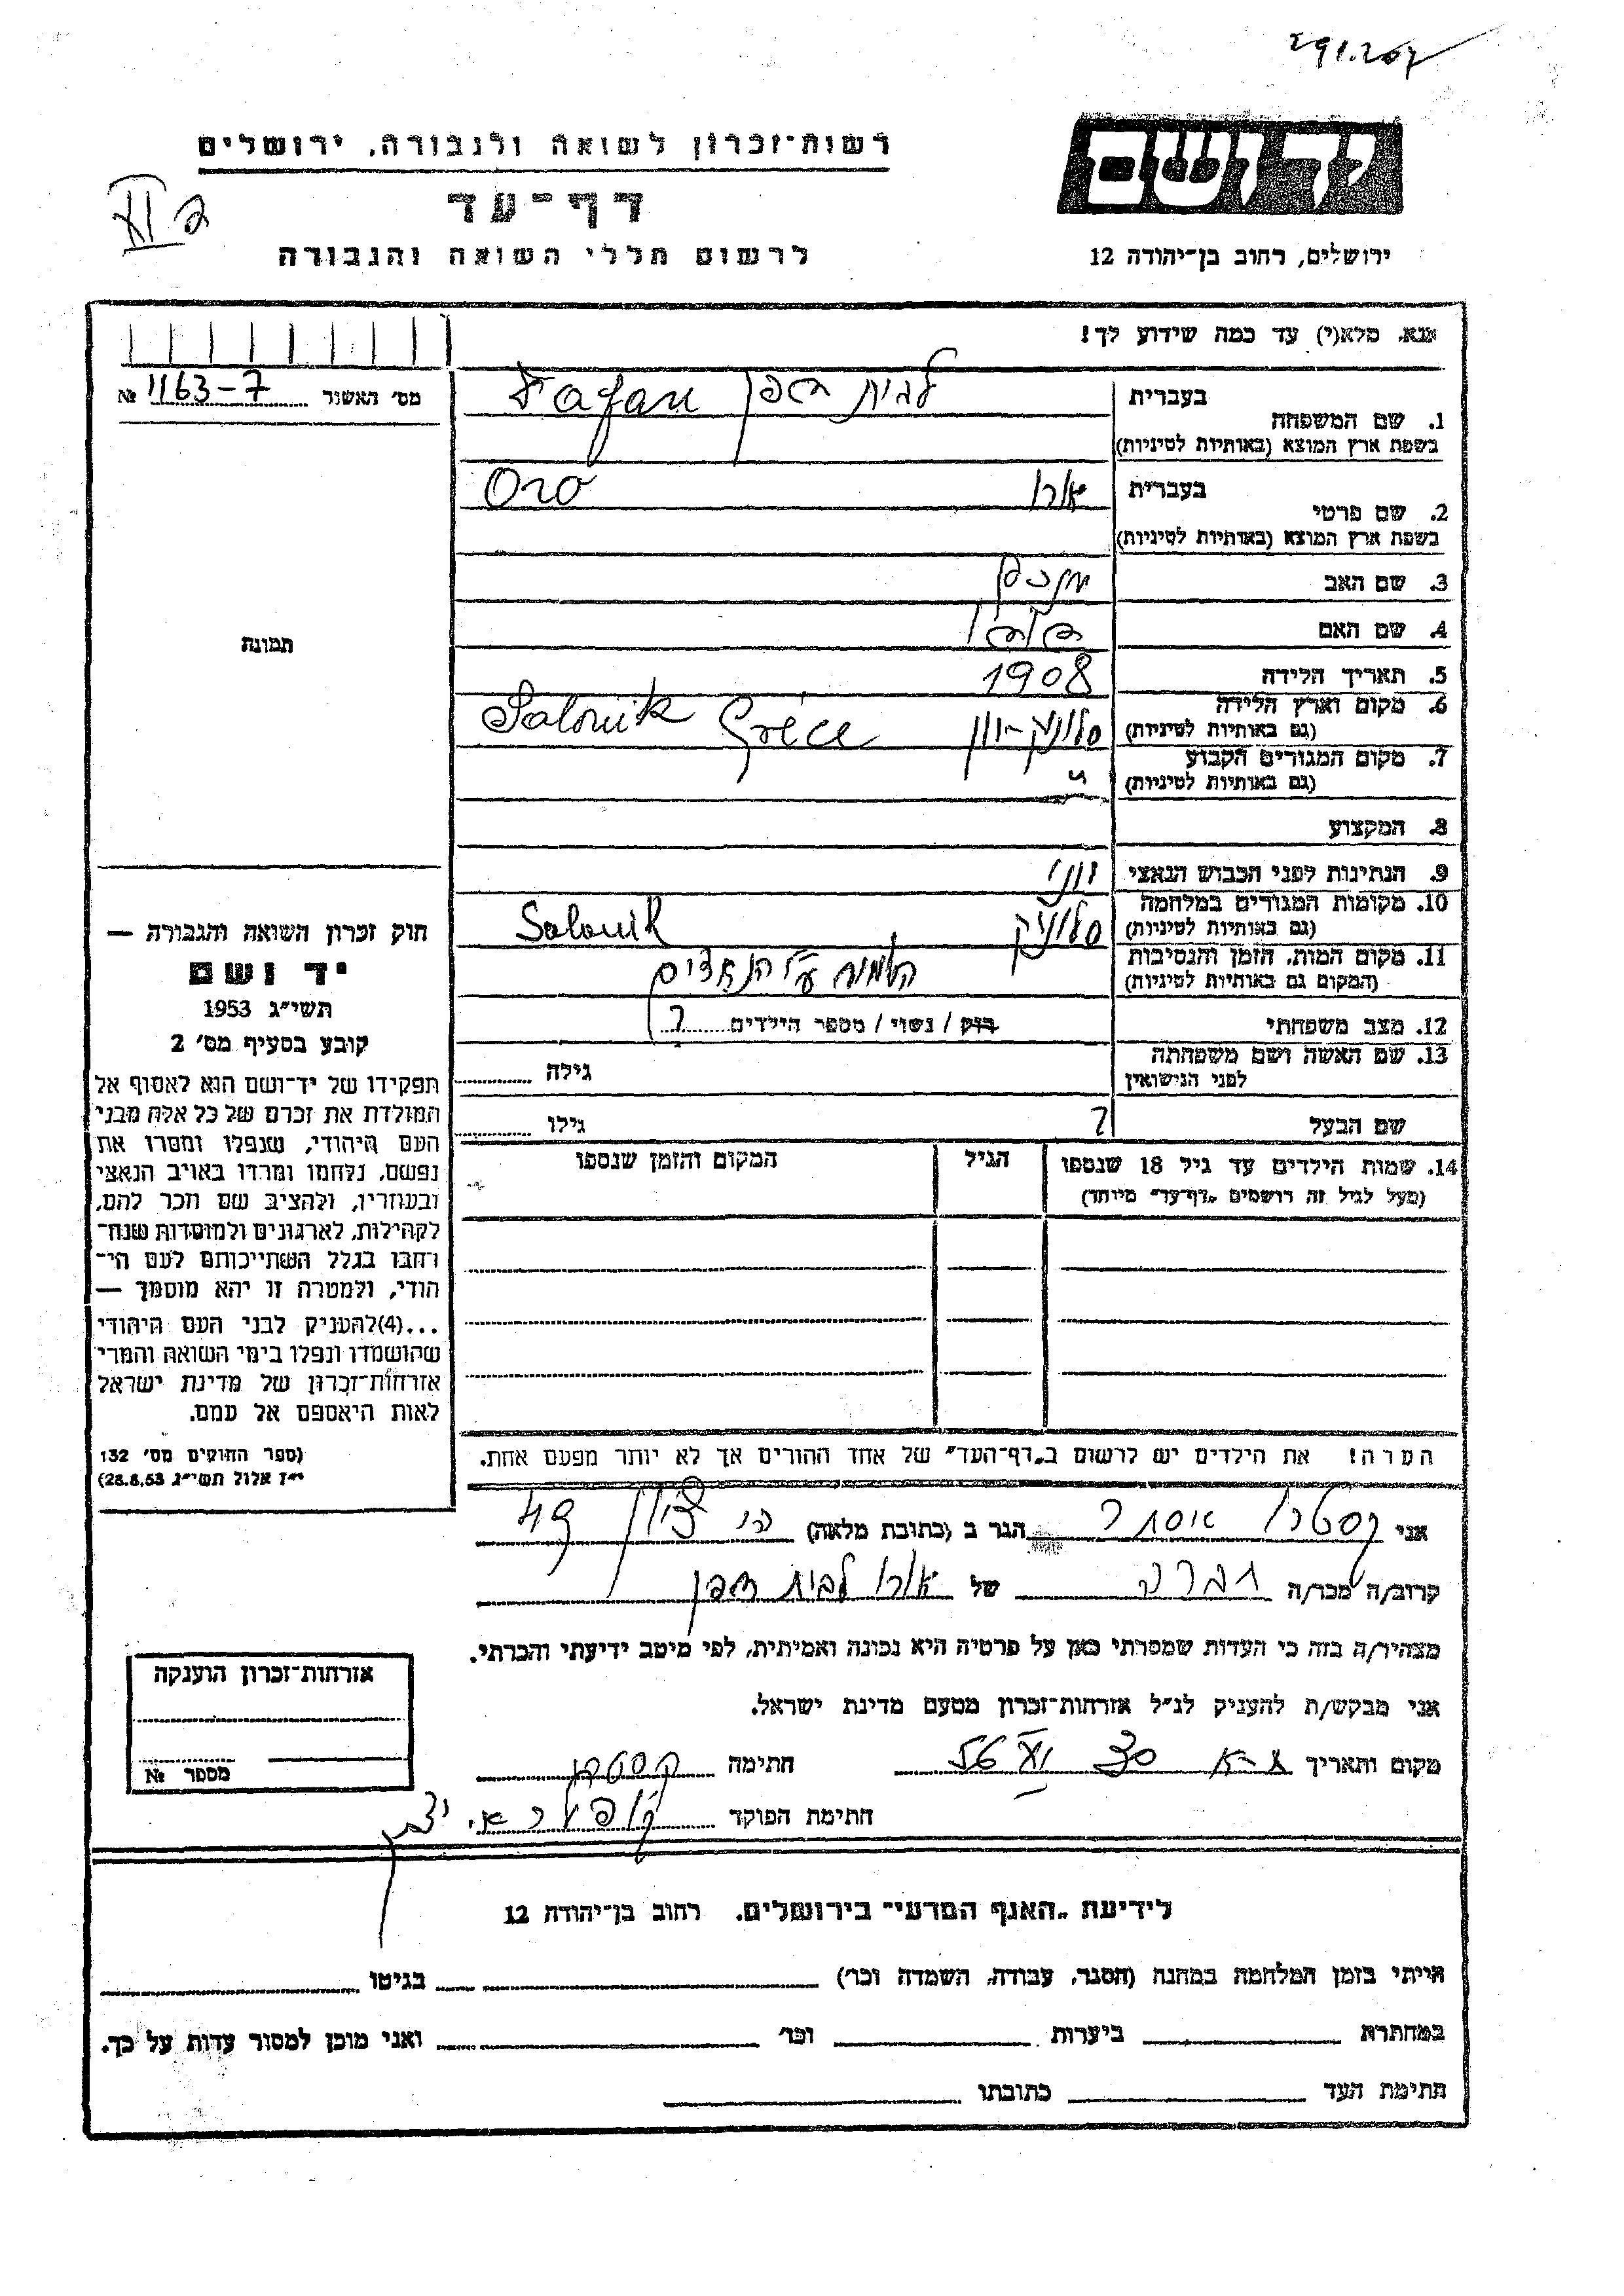 רשות־זכרון לשואה ולגבורה, ירושלים
יד ושם
דף־עד
לרשום חללי השואה והגבורה
ירושלים, רחוב בן־יהודה 12
אנא, מלא(י) עד כמה שידוע לך!
מס׳ האשור 1163-7 №
1. שם המשפחה
בעברית לבית
בשפת ארץ המוצא (באותיות לטיניות)
2. שם פרטי
בעברית אורו Oro
בשפת ארץ המוצא (באותיות לטיניות)
3. שם האב
4. שם האם
5. תאריך הלידה 1908
6. מקום וארץ הלידה סלוניק-יון Salonik Gréce
(גם באותיות לטיניות)
7. מקום המגורים הקבוע "
(גם באותיות לטיניות)
8. המקצוע
9. הנתינות לפני הכבוש הנאצי יוני
10. מקומות המגורים במלחמה סלוניק Salonik
(גם באותיות לטיניות)
11. מקום המות, הזמן והנסיבות ע"י הנאצים
(המקום גם באותיות לטיניות)
12. מצב משפחתי רווק / נשוי / מספר הילדים ?
13. שם האשה ושם משפחתה גילה
לפני הנישואין
שם הבעל ? גילו
14. שמות הילדים עד גיל 18 שנספו הגיל המקום והזמן שנספו
(מעל לגיל זה רושמים „דף־עד" מיוחד)
הערה! את הילדים יש לרשום ב„דף־העד" של אחד ההורים אך לא יותר מפעם אחת.
תמונה
חוק זכרון השואה והגבורה —
יד ושם
תשי״ג 1953
קובע בסעיף מס׳ 2
תפקידו של יד־ושם הוא לאסוף אל
המולדת את זכרם של כל אלה מבני
העם היהודי, שנפלו ומסרו את
נפשם, נלחמו ומרדו באויב הנאצי
ובעוזריו, ולהציב שם וזכר להם,
לקהילות, לארגונים ולמוסדות שנח־
רבו בגלל השתייכותם לעם הי־
הודי, ולמטרה זו יהא מוסמך —
...(4)להעניק לבני העם היהודי
שהושמדו ונפלו בימי השואה והמרי
אזרחות־זכרון של מדינת ישראל
לאות היאספם אל עמם.
(ספר החוקים מס׳ 132
י״ז אלול תשי״ג 28.8.53)
אני קסטרו אסתר הגר ב (כתובת מלאה) בני ציון 49
קרוב/ה מכר/ה חברה של אורו לבית
מצהיר/ה בזה כי העדות שמסרתי כאן על פרטיה היא נכונה ואמיתית, לפי מיטב ידיעתי והכרתי.
אני מבקש/ת להעניק לנ״ל אזרחות־זכרון מטעם מדינת ישראל.
מקום ותאריך ת-א 30 56 חתימה קסטרו
חתימת הפוקד
אזרחות־זכרון הוענקה
מספר №
לידיעת „האגף המדעי" בירושלים, רחוב בן־יהודה 12
הייתי בזמן המלחמה במחנה (הסגר, עבודה, השמדה וכו׳) בגיטו
במחתרת ביערות וכו׳ ואני מוכן למסור עדות על כך.
חתימת העד כתובתו